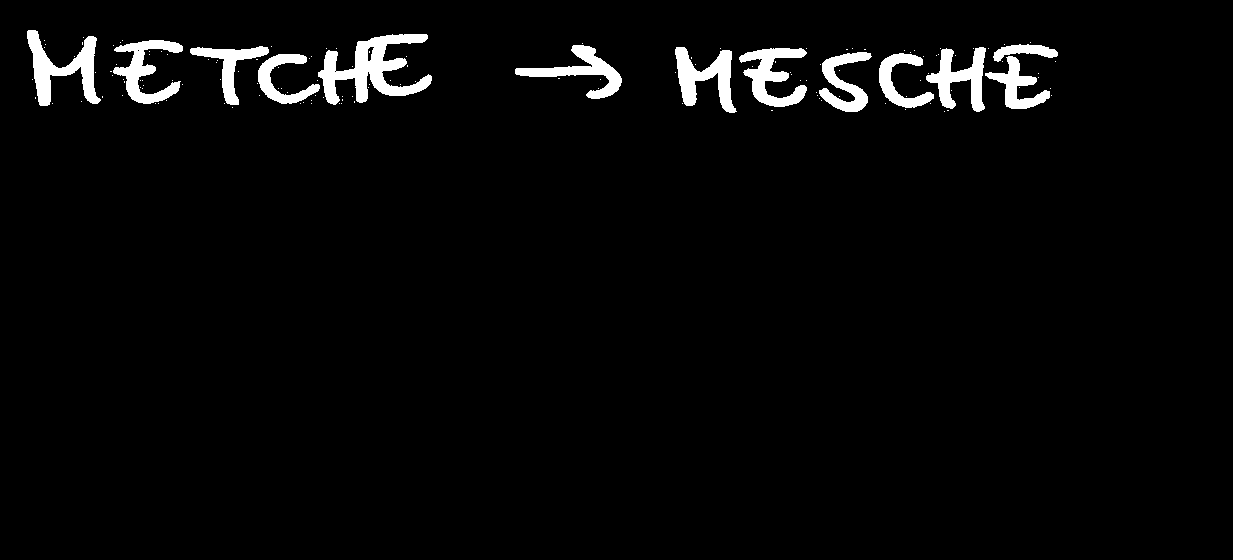 METCHE → MESCHE